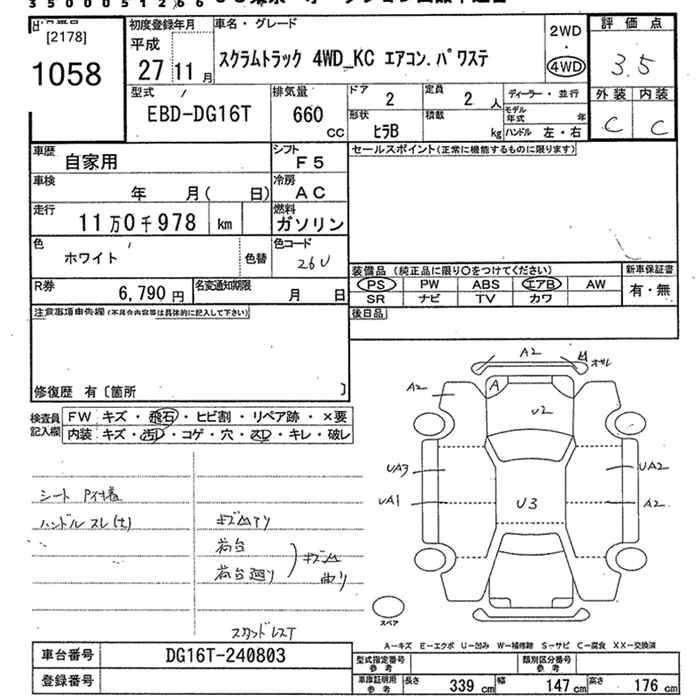 3500051266
[2178]
1058
初度登録年月
平成
27 11月
車名・グレード
スクラムトラック 4WD_KC エアコン.パワステ
2WD
・
4WD
評価点
3.5
外装 内装
C C
型式
EBD-DG16T
排気量
660
CC
ドア
2
定員
2 人
ディーラー・並行
モデル年式 年
形状
ヒラB
積載
kg
ハンドル 左・右
車歴
自家用
シフト
F5
セールスポイント(正常に機能するものに限ります)
車検
年 月( 日)
冷房
AC
走行
11万0千978 km
燃料
ガソリン
色
ホワイト
色替
色コード
26U
装備品 (純正品に限り〇をつけてください)
新車保証書
PS PW ABS エアB AW
有・無
SR ナビ TV カワ
R券
6,790円
名変通知期限
月 日
注意事項申告欄(不具合内容等は具体的に記入して下さい)
後日品
修復歴 有〔箇所 〕
検査員記入欄
FW キズ・飛石・ヒビ割・リペア跡・×要
内装 キズ・汚レ・コゲ・穴・スレ・キレ・破レ
A2
A2
A
U2
UA3
UA2
UA1
U3
A2
シート
ハンドル スレ(大)
荷台
荷台廻り
スペア
車台番号
DG16T-240803
登録番号
A-キズ E-エクボ U-凹み W-補修跡 S-サビ C-腐食 XX-交換済
型式指定番号 参考
類別区分番号 参考
車庫証明用 参考
長さ 339 cm
幅 147 cm
高さ 176 cm